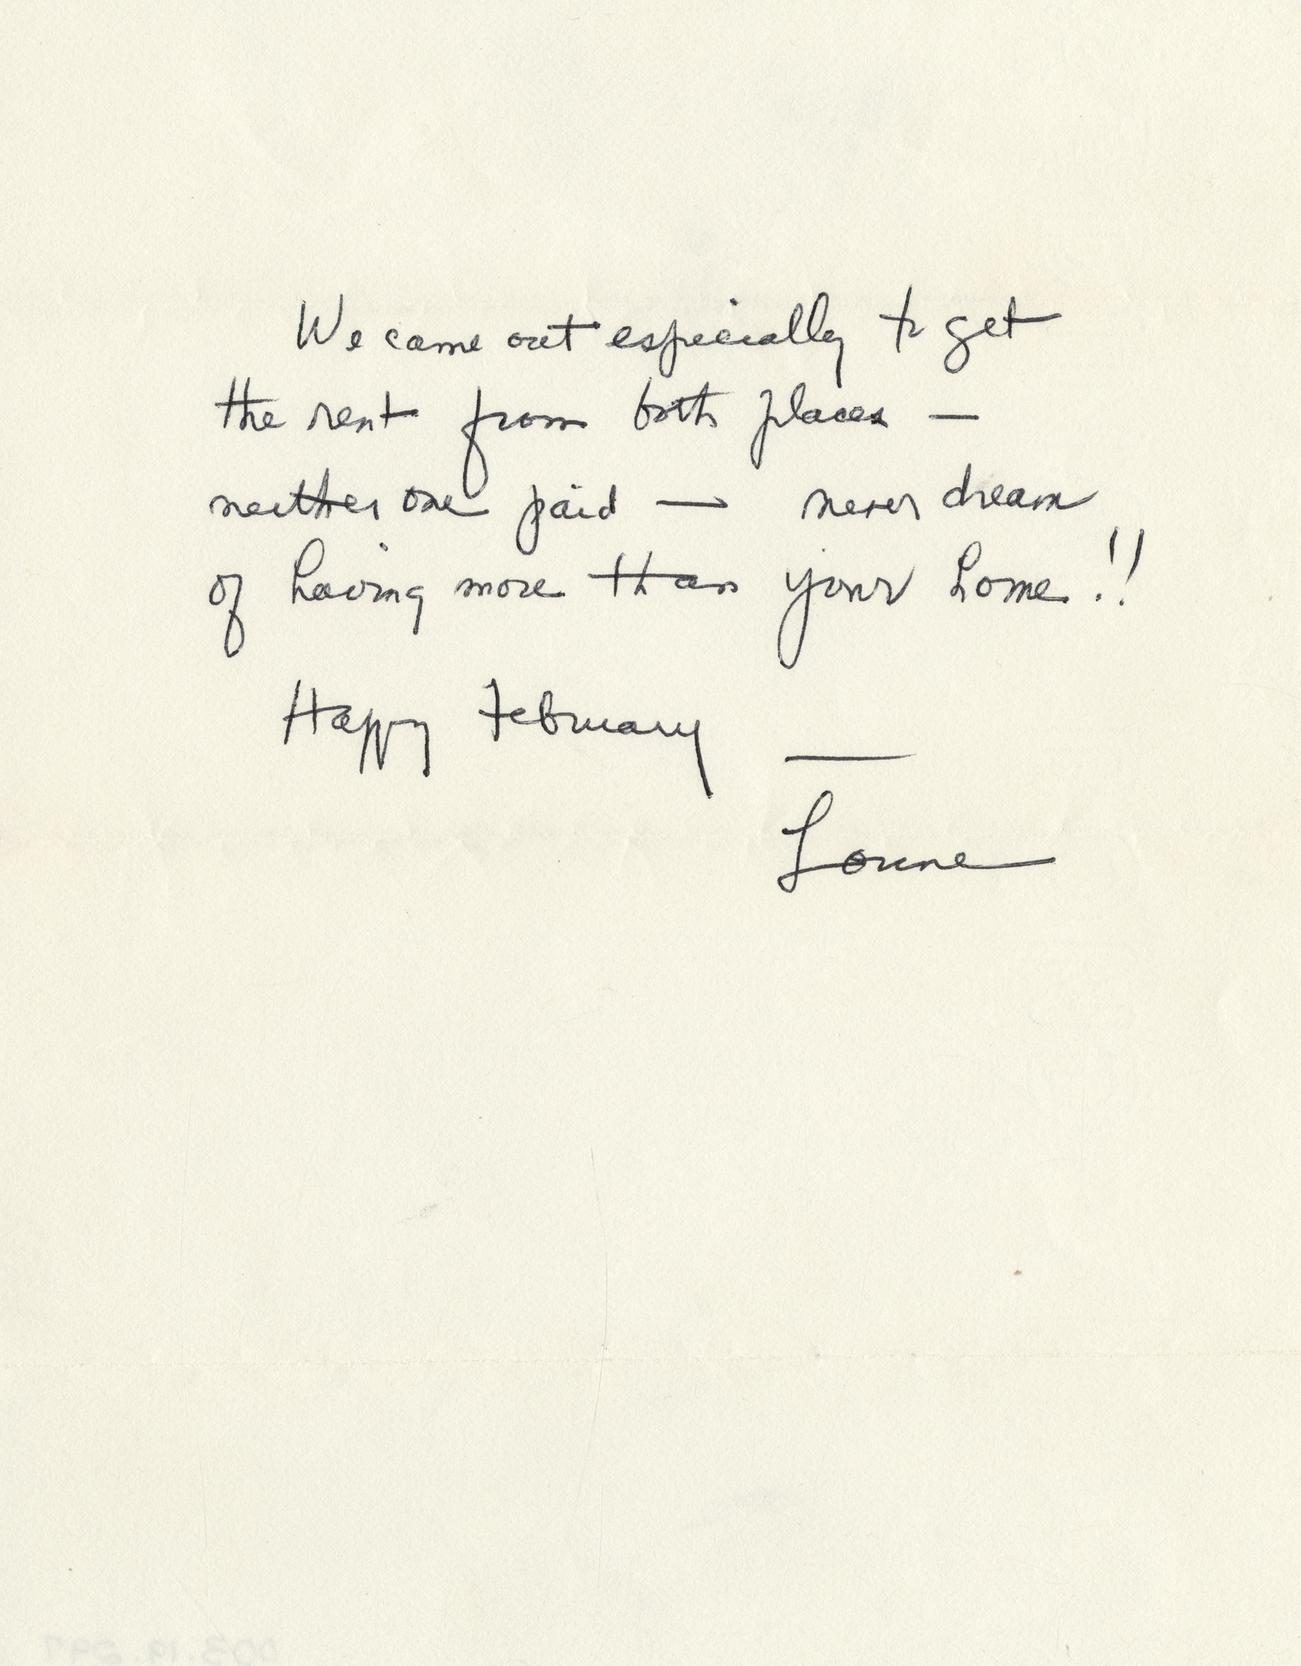 We came out especially to get
the rent from both places —
neither one paid — never dream
of having more than your home!!
Happy February —
Lorine